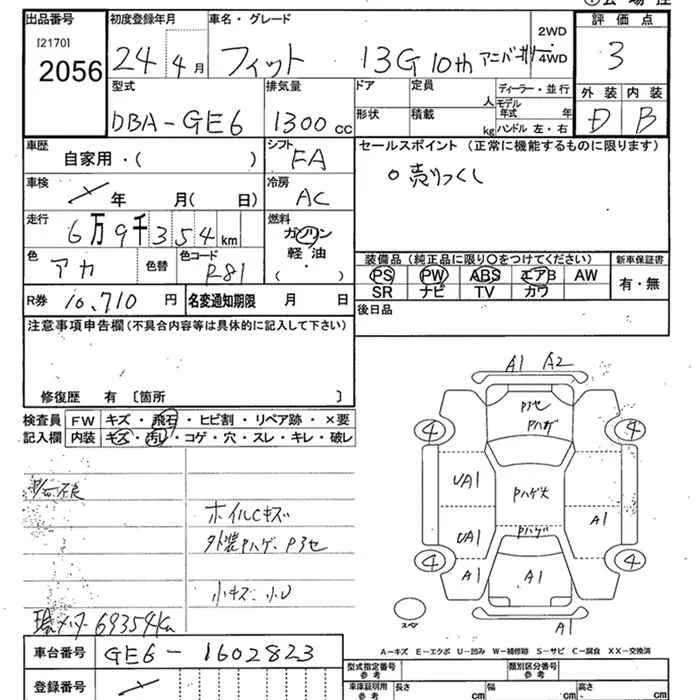 出品番号
[2170]
2056
初度登録年月
24年 4月
車名・グレード
フィット 13G 10th アニバーサリー
2WD
4WD
評価点
3
外装 内装
D B
型式
DBA-GE6
排気量
1300 cc
ドア
形状
定員
人
積載
kg
ディーラー・並行
モデル年式 年
ハンドル 左・右
車歴
自家用・( )
シフト
FA
車検
年 月( 日)
冷房
AC
走行
6万9千354km
燃料
ガソリン
軽油
( ・ )
色
アカ
色替
色コード
R81
R券 10,710 円
名変通知期限 月 日
セールスポイント(正常に機能するものに限ります)
○売りつくし
装備品(純正品に限り○をつけてください)
PS PW ABS エアB AW
SR ナビ TV カワ
新車保証書
有・無
後日品
注意事項申告欄(不具合内容等は具体的に記入して下さい)
修復歴 有〔箇所 〕
検査員 FW キズ・飛石・ヒビ割・リペア跡・×要
記入欄 内装 キズ・汚レ・コゲ・穴・スレ・キレ・破レ
ホイルCキズ
外装Pハゲ・Pヨセ
小キズ・小U
69354Km
A1 A2
Pヨセ
Pハゲ
4 4
UA1
Pハゲ大
A1
UA1
Pハゲ
4 4
A1
A1
スペア
A1
A-キズ E-エクボ U-凹み W-補修跡 S-サビ C-腐食 XX-交換済
車台番号 GE6-1602823
登録番号
型式指定番号
参考
類別区分番号
参考
車庫証明用
参考
長さ cm
幅 cm
高さ cm